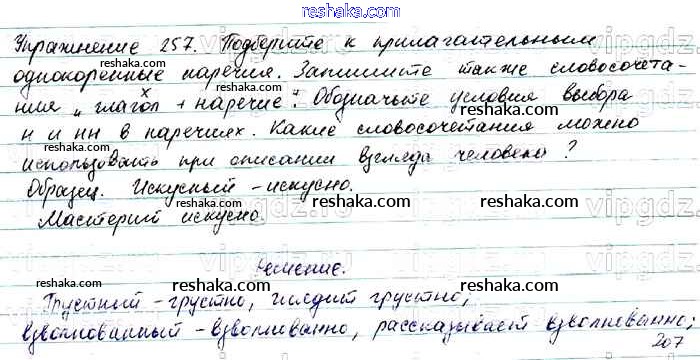 reshaka.com
Упражнение 257. Подберите к прилагательным
однокоренные наречия. Запишите также словосочета-
ния „глагол + наречие". Обозначьте условия выбора
н и нн в наречиях. Какие словосочетания можно
использовать при описании взгляда человека?
Образец. Искусный - искусно.
Мастерит искусно.
Решение.
Грустный - грустно, глядит грустно,
взволнованный - взволнованно, рассказывает взволнованно;
207